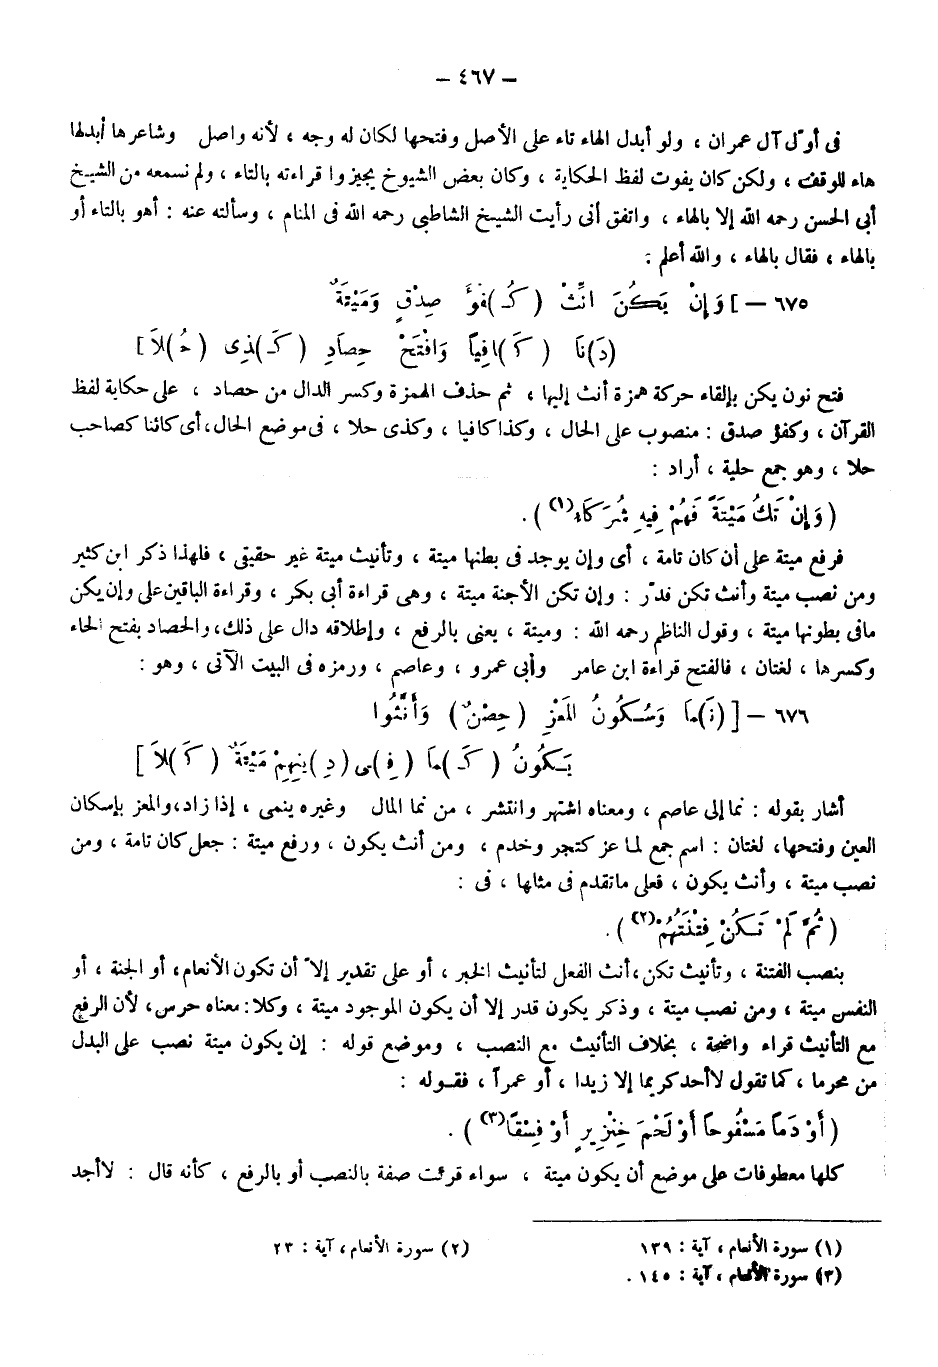 — ٤٦٧ —
فى أوّل آل عمران ، ولو أبدل الهاء تاء على الأصل وفتحها لكان له وجه ، لأنه واصل وشاعرها أبدلها
هاء للوقف ، ولكن كان يفوت لفظ الحكاية ، وكان بعض الشيوخ يجيزوا قراءته بالتاء ، ولم نسمعه من الشيخ
أبى الحسن رحمه الله إلا بالهاء ، واتفق أنى رأيت الشيخ الشاطبى رحمه الله فى المنام ، وسألته عنه : أهو بالتاء أو
بالهاء ، فقال بالهاء ، والله أعلم :
٦٧٥ — [ وَإِنْ يَكُنَ انِّثْ (كُـ)فْؤَ صِدْقٍ وَمَيْتَةٌ
(دَ)نَا (كَـ)افِياً وَافْتَحْ حِصَادِ (كَـ)ذِى (حُـ)لاَ ]
فتح نون يكن بإلقاء حركة همزة أنث إليها ، ثم حذف الهمزة وكسر الدال من حصاد ، على حكاية لفظ
القرآن ، وكفؤ صدق : منصوب على الحال ، وكذا كافيا ، وكذى حلا ، فى موضع الحال ، أى كائنا كصاحب
حلا ، وهو جمع حلية ، أراد :
( وَإِنْ تَكُ مَيْتَةً فَهُمْ فِيهِ شُرَكَاء(١) ) .
فرفع ميتة على أن كان تامة ، أى وإن يوجد فى بطنها ميتة ، وتأنيث ميتة غير حقيقى ، فلهذا ذكر ابن كثير
ومن نصب ميتة وأنث تكن فدّر : وإن تكن الأجنة ميتة ، وهى قراءة أبى بكر ، وقراءة الباقين على وإن يكن
مافى بطونها ميتة ، وقول الناظم رحمه الله : وميتة ، يعنى بالرفع ، وإطلاقه دال على ذلك ، والحصاد بفتح الحاء
وكسرها ، لغتان ، فالفتح قراءة ابن عامر وأبى عمرو ، وعاصم ، ورمزه فى البيت الآتى ، وهو :
٦٧٦ — [ (نَـ)مَا وَسُكُونُ المَعْزِ (حِصْنٌ) وَأَنَّثُوا
يَكُونُ (كَـ)مَا (فِـ)ى (دِ)ينِهِمْ مَيْتَةٌ (كَـ)لاَ ]
أشار بقوله : نما إلى عاصم ، ومعناه اشتهر وانتشر ، من نما المال وغيره ينمى ، إذا زاد ، والمعز بإسكان
العين وفتحها ، لغتان : اسم جمع لماعز كتجر وخدم ، ومن أنث يكون ، ورفع ميتة : جعل كان تامة ، ومن
نصب ميتة ، وأنث يكون ، فعلى ماتقدم فى مثلها ، فى :
( ثُمَّ لَمْ تَكُنْ فِتْنَتَهُمْ(٢) ) .
بنصب الفتنة ، وتأنيث تكن ، أنث الفعل لتأنيث الخبر ، أو على تقدير إلاّ أن تكون الأنعام ، أو الجنة ، أو
النفس ميتة ، ومن نصب ميتة ، وذكر يكون قدر إلا أن يكون الموجود ميتة ، وكلا : معناه حرس ، لأن الرفع
مع التأنيث قراء واضحة ، بخلاف التأنيث مع النصب ، وموضع قوله : إن يكون ميتة نصب على البدل
من محرما ، كما تقول لاأحد كريما إلا زيدا ، أو عمراً ، فقـوله :
( أَوْ دَماً مَسْفُوحاً أَوْ لَحْمَ خِنْزِيرٍ أَوْ فِسْقًا(٣) ) .
كلها معطوفات على موضع أن يكون ميتة ، سواء قرئت صفة بالنصب أو بالرفع ، كأنه قال : لاأجد
(١) سورة الأنعام ، آية : ١٣٩
(٢) سورة الأنعام ، آية : ٢٣
(٣) سورة الأنعام ، آية : ١٤٥ .